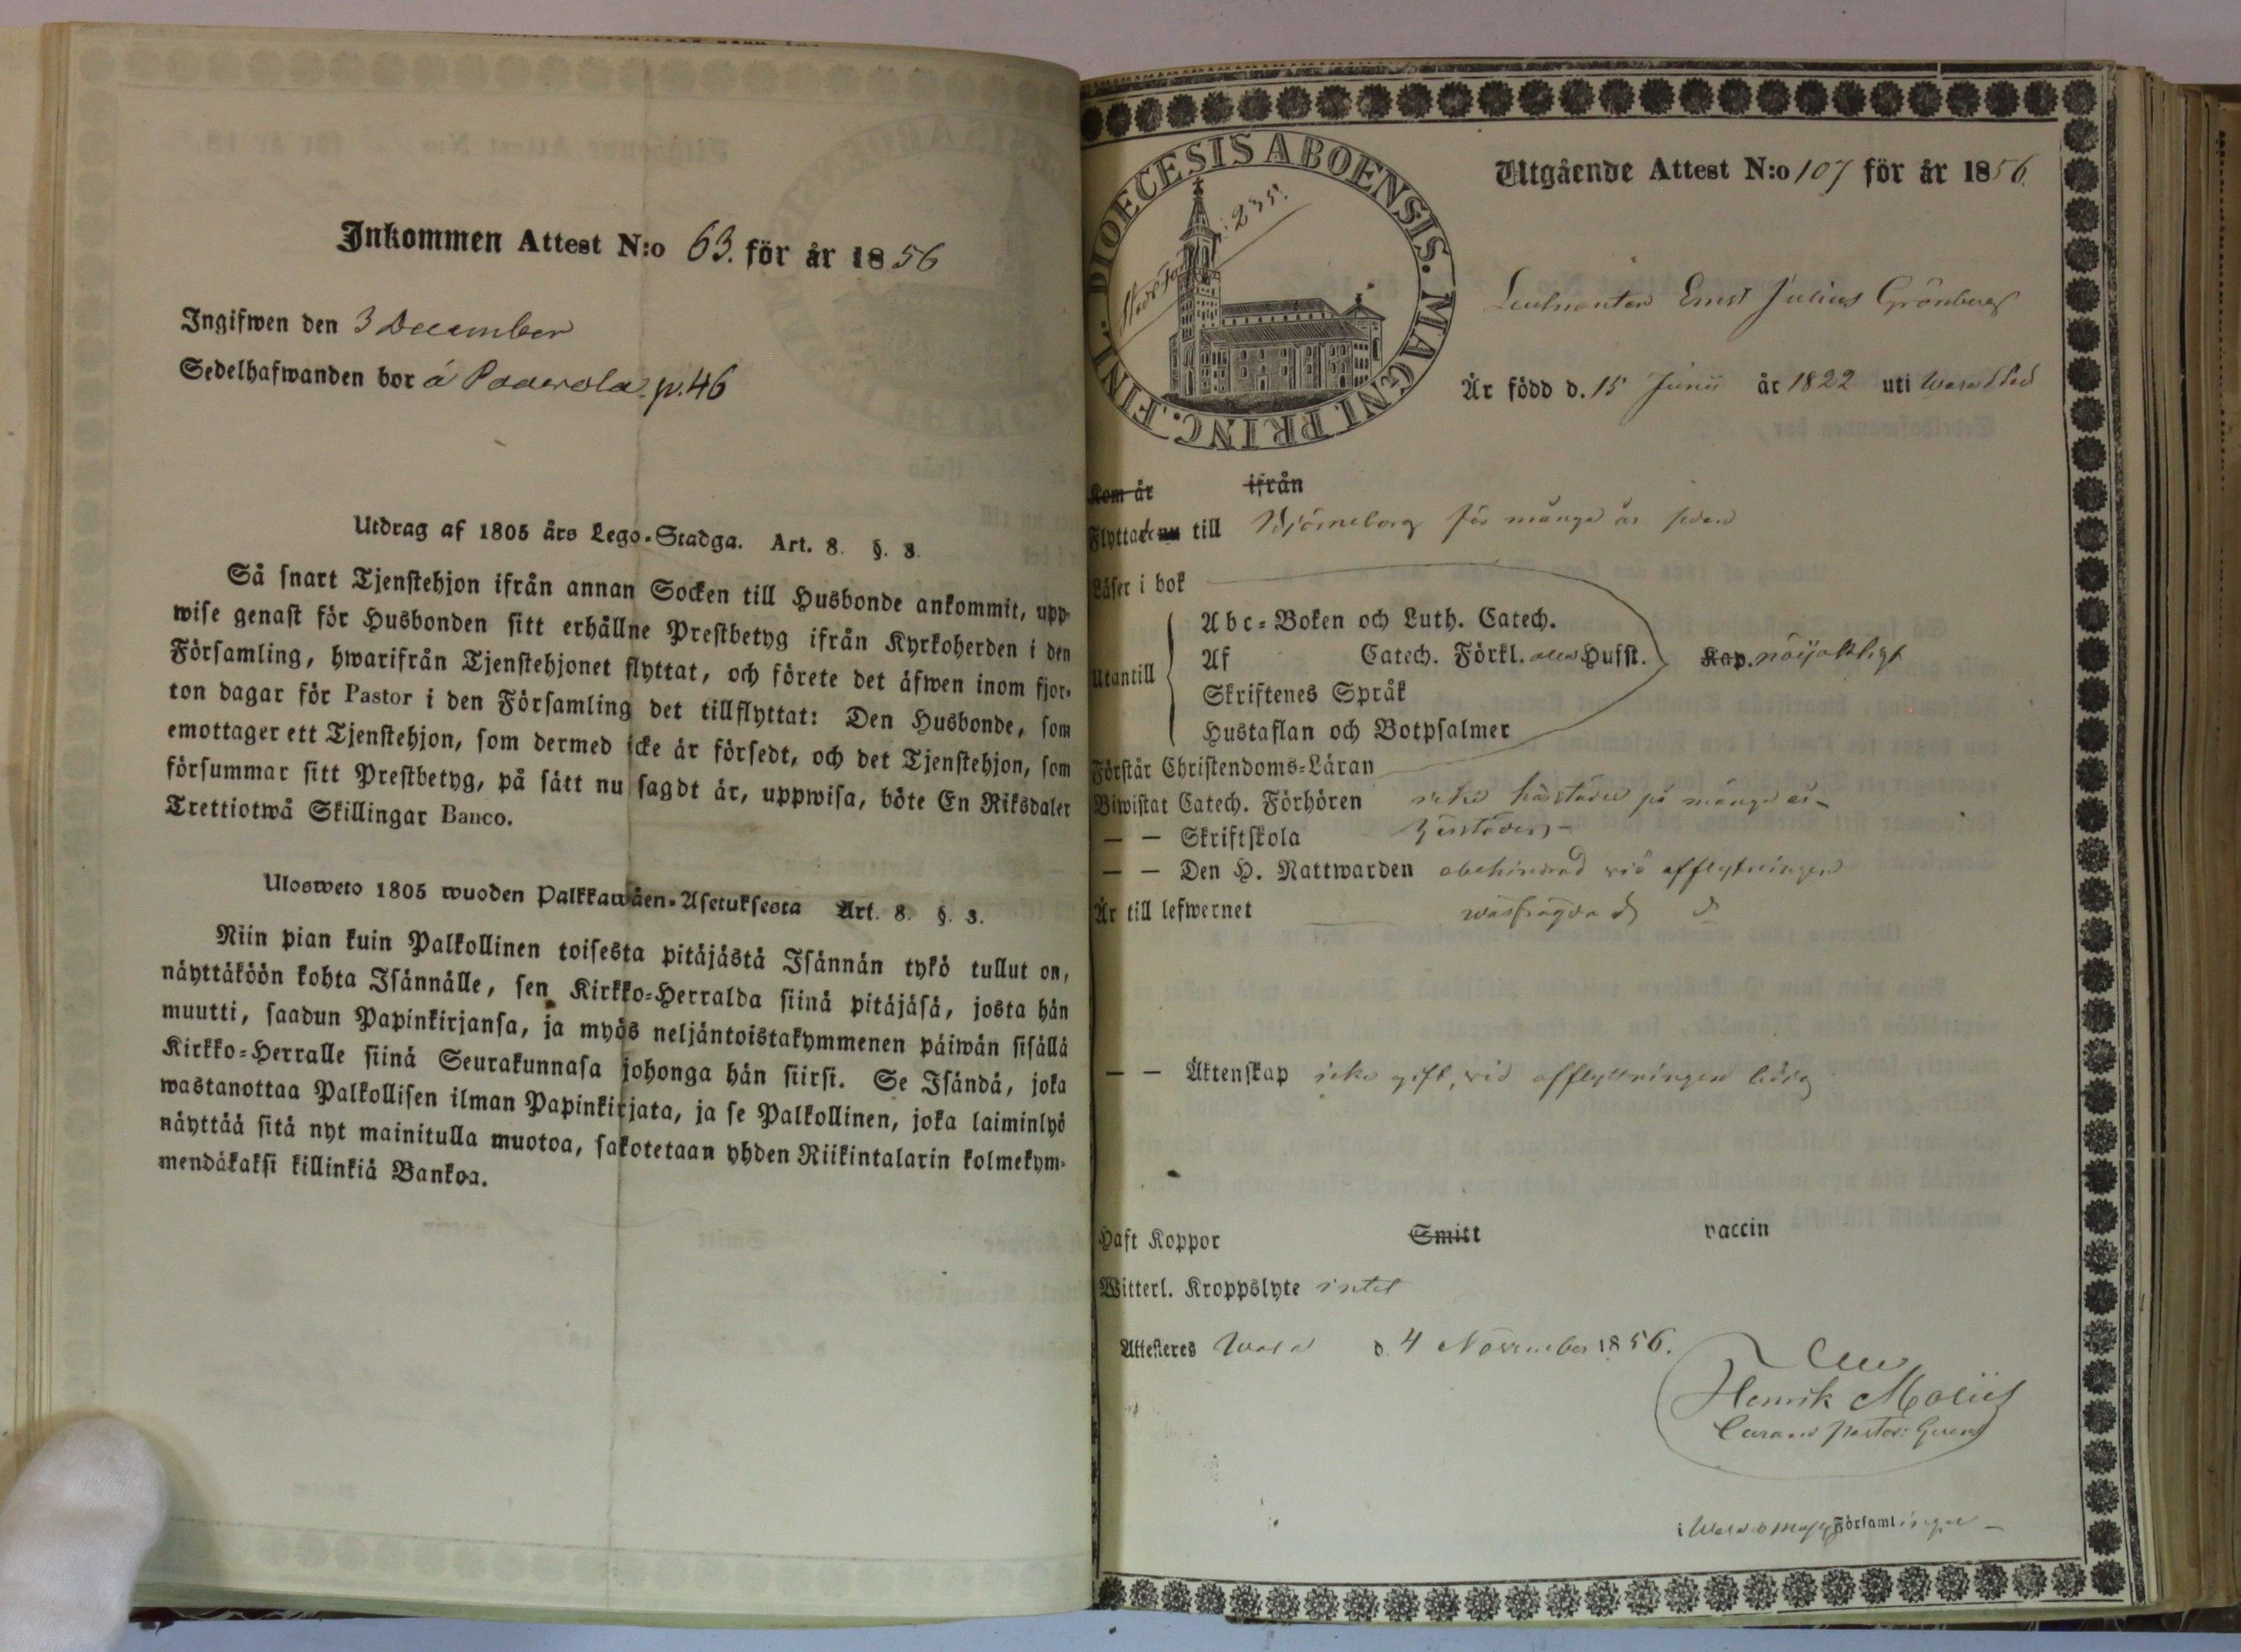 Inkommen Attest N:o 63. för år 1856
Ingifwen den 3 December
Sedelhafwanden bor å Paawola. p. 46
Utdrag af 1805 års Lego-Stadga. Art. 8. §. 3.
Så snart Tjenstehjon ifrån annan Socken till Husbonde ankommit, upp-
wise genast för Husbonden sitt erhållne Prestbetyg ifrån Kyrkoherden i den
Församling, hwarifrån Tjenstehjonet flyttat, och förete det äfwen inom fjor-
ton dagar för Pastor i den Församling det tillflyttat: Den Husbonde, som
emottager ett Tjenstehjon, som dermed icke är försedt, och det Tjenstehjon, som
försummar sitt Prestbetyg, på sätt nu sagdt är, uppwisa, böte En Riksdaler
Trettiotwå Skillingar Banco.
Ulosweto 1805 wuoden Palkkawäen-Asetuksesta Art. 8. §. 3.
Niin pian kuin Palkollinen toisesta pitäjästä Isännän tykö tullut on,
näyttäköön kohta Isännälle, sen Kirkko-Herralda siinä pitäjäsä, josta hän
muutti, saadun Papinkirjansa, ja myös neljäntoistakymmenen päiwän sisällä
Kirkko-Herralle siinä Seurakunnasa johonga hän siirsi. Se Isändä, joka
wastanottaa Palkollisen ilman Papinkirjata, ja se Palkollinen, joka laiminlyö
näyttää sitä nyt mainitulla muotoa, sakotetaan yhden Riikintalarin kolmekym-
mendäkaksi killinkiä Bankoa.
DIOECESIS ABOENSIS. MAGNI PRINC. FINL.
: 235.
Utgående Attest N:o 107 för år 1856.
Ernst Julius Grönberg
Är född d. 15 Junii år 1822 uti Wasa Stad
Kom år ifrån
Flyttade nu till Björneborg för många år sedan
Läser i bok
Utantill
Abc-Boken och Luth. Catech.
Af Catech. Förkl. Husst. Kap. nöijaktligt
Skriftenes Språk
Hustaflan och Botpsalmer
Förstår Christendoms-Läran
Biwistat Catech. Förhören icke härstädes på många år
— — Skriftskola härstädes
— — Den H. Nattwarden obehindrad vid afflyttningen
Är till lefwernet wälfrägdad
— — Äktenskap icke gift, vid afflyttningen ledig
Haft Koppor Smitt vaccin
Witterl. Kroppslyte intet
Attesteres Wasa d. 4 November 1856.
Henrik
Pastor:
i Wasa o Församlingar